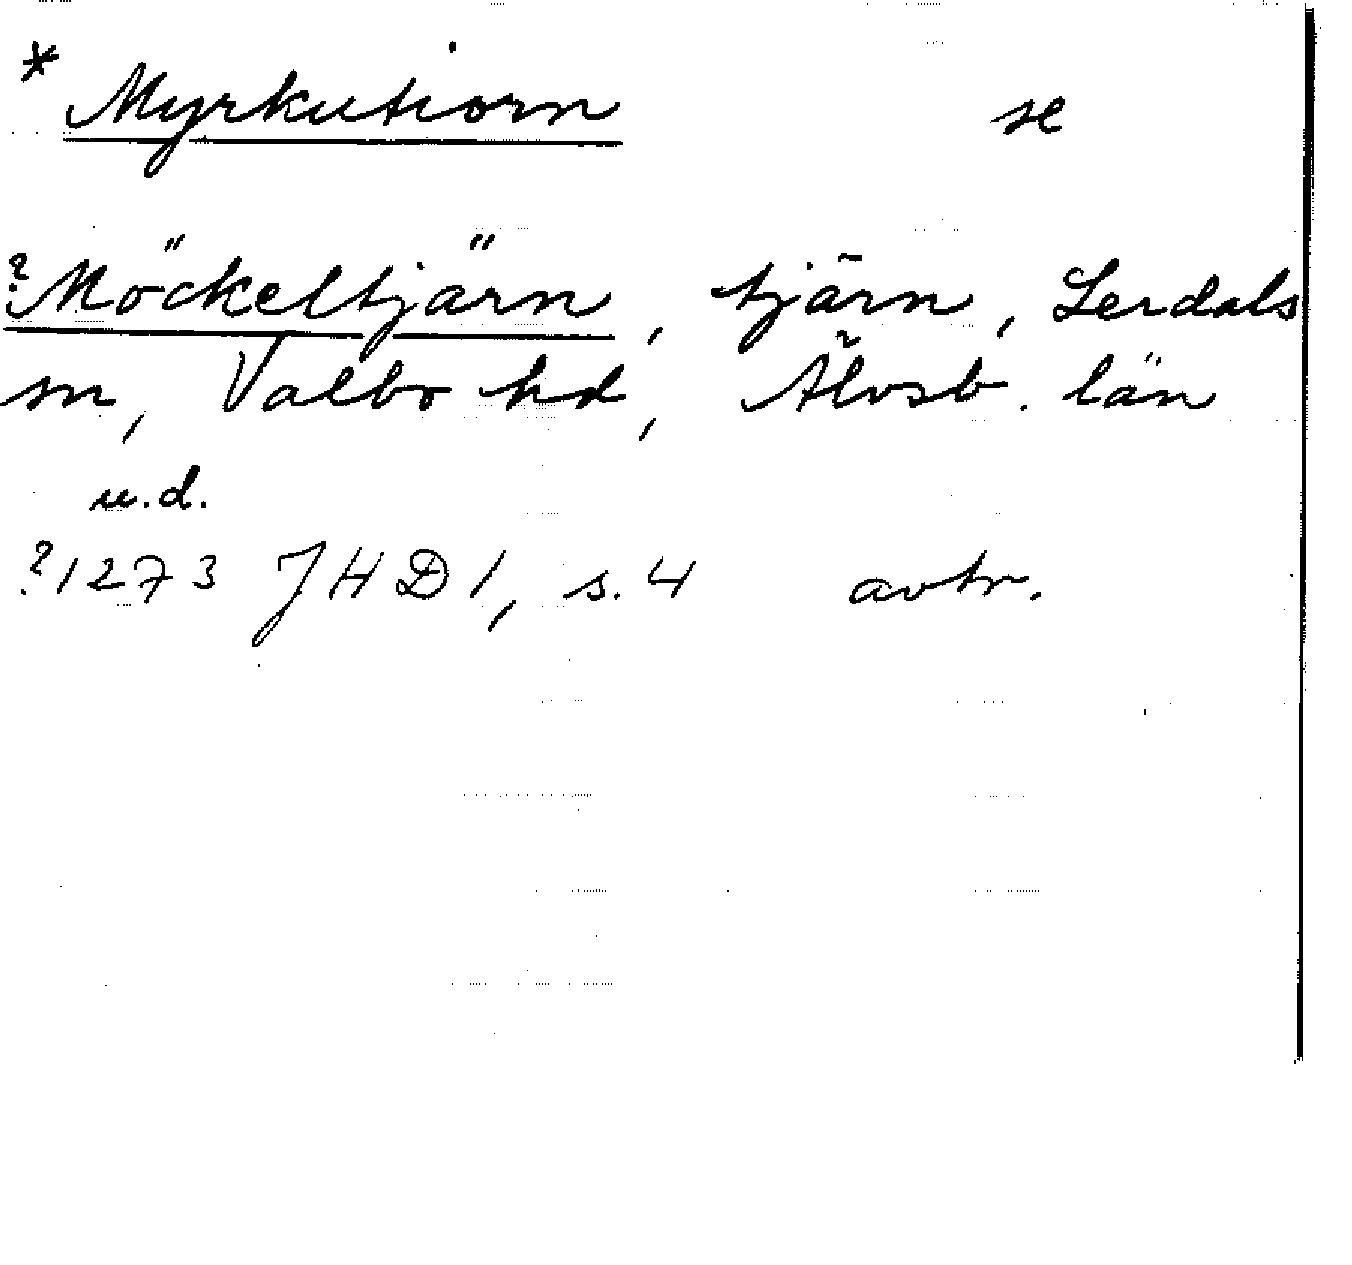 * Myrkutiorn se
? Möckeltjärn, tjärn, Lerdals
sn, Valbo hd, Älvsb. län
u.d.
? 1273 JHD 1, s. 4 avtr.